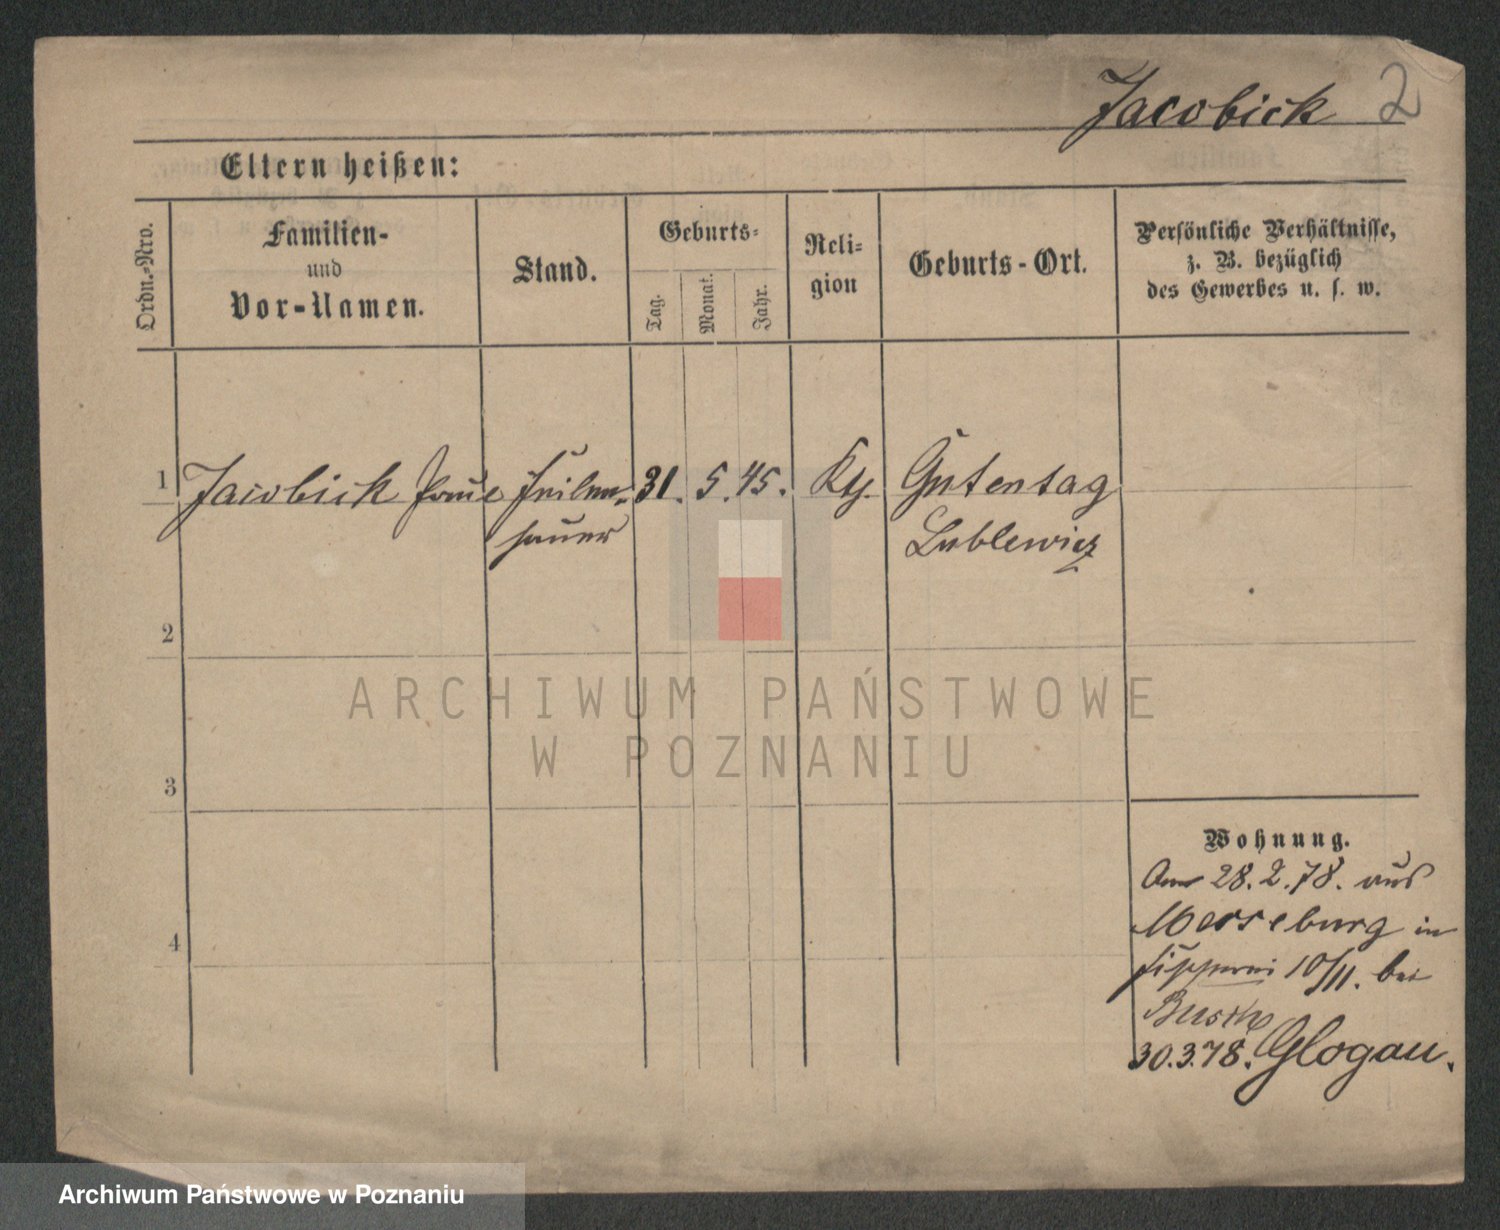 Jacobick 2
Eltern heißen:
Ordn.-Nro.
Familien-
und
Vor-Namen.
Stand.
Geburts-
Tag.
Monat.
Jahr.
Reli-
gion
Geburts-Ort.
Persönliche Verhältnisse,
z. B. bezüglich
des Gewerbes u. s. w.
1 Jacobick Feilen- 31. 5. 45. Gutentag
hauer Lublewicz
2
3
4
Wohnung.
Am 28.2.78. aus
Merseburg in
10/11. bei
Busch
30.3.78. Glogau.
ARCHIWUM PAŃSTWOWE
W POZNANIU
Archiwum Państwowe w Poznaniu